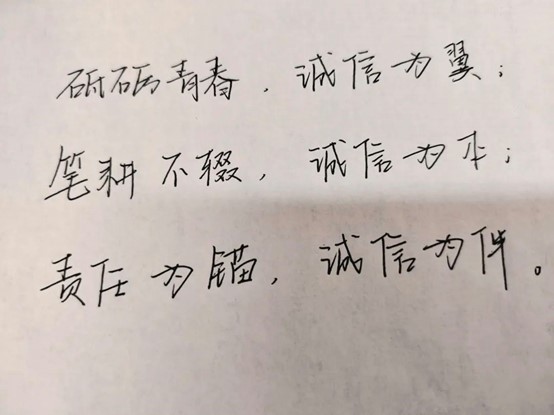 砥砺青春，诚信为翼；
笔耕不辍，诚信为本；
责任为锚，诚信为伴。